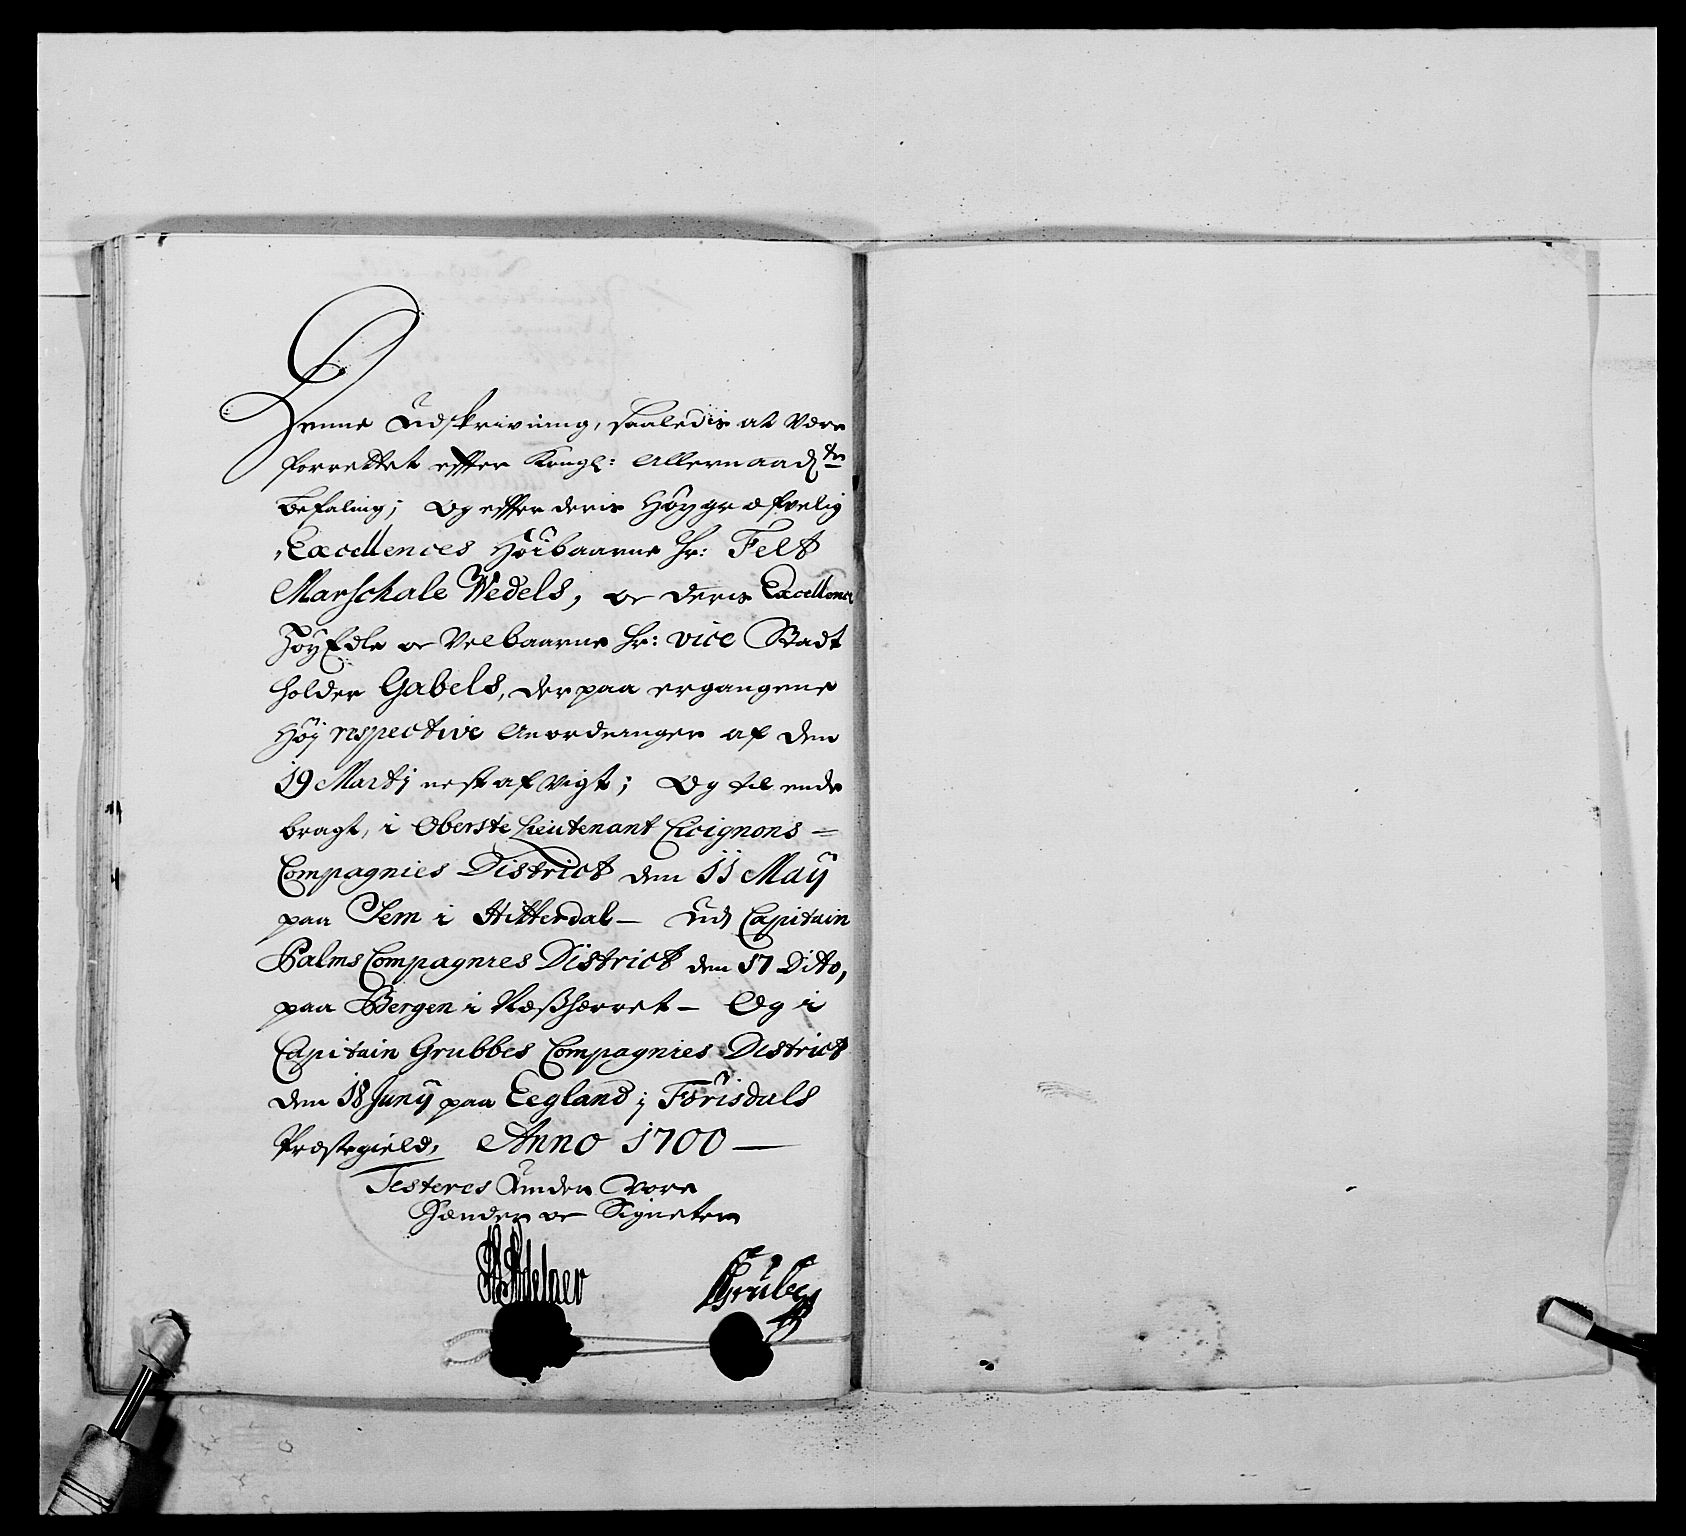 Denne Udskrivning, saaledis at være
forrettet effter Kongl: Allernaad.ste
Befaling; Og effter deris Høygræfvelig
Excellences Höibaarne Hr: Felt
Marschale Wedels, oc deris Excellence
HøyEdle oc Velbaarne Hr: vice Stadt
holder Gabels, derpaa ergangene
Høy respective Anordninger af den
19 Martj nest afvigt; Og til ende
bragt, i Oberste Lieutenant Cicignons =
Compagnies District den 11 Maÿ
paa Sem i Hitterdal – Ud Capitain
Palms Compagnies District den 17 Dito,
paa Bergen i Næsshærret – Og i
Capitain Grubbes Compagnies District
den 18 Junÿ paa Eegland i Förisdals
Præstegield, Anno 1700 —
Testeres Under Vore
Hænder oc Signeter